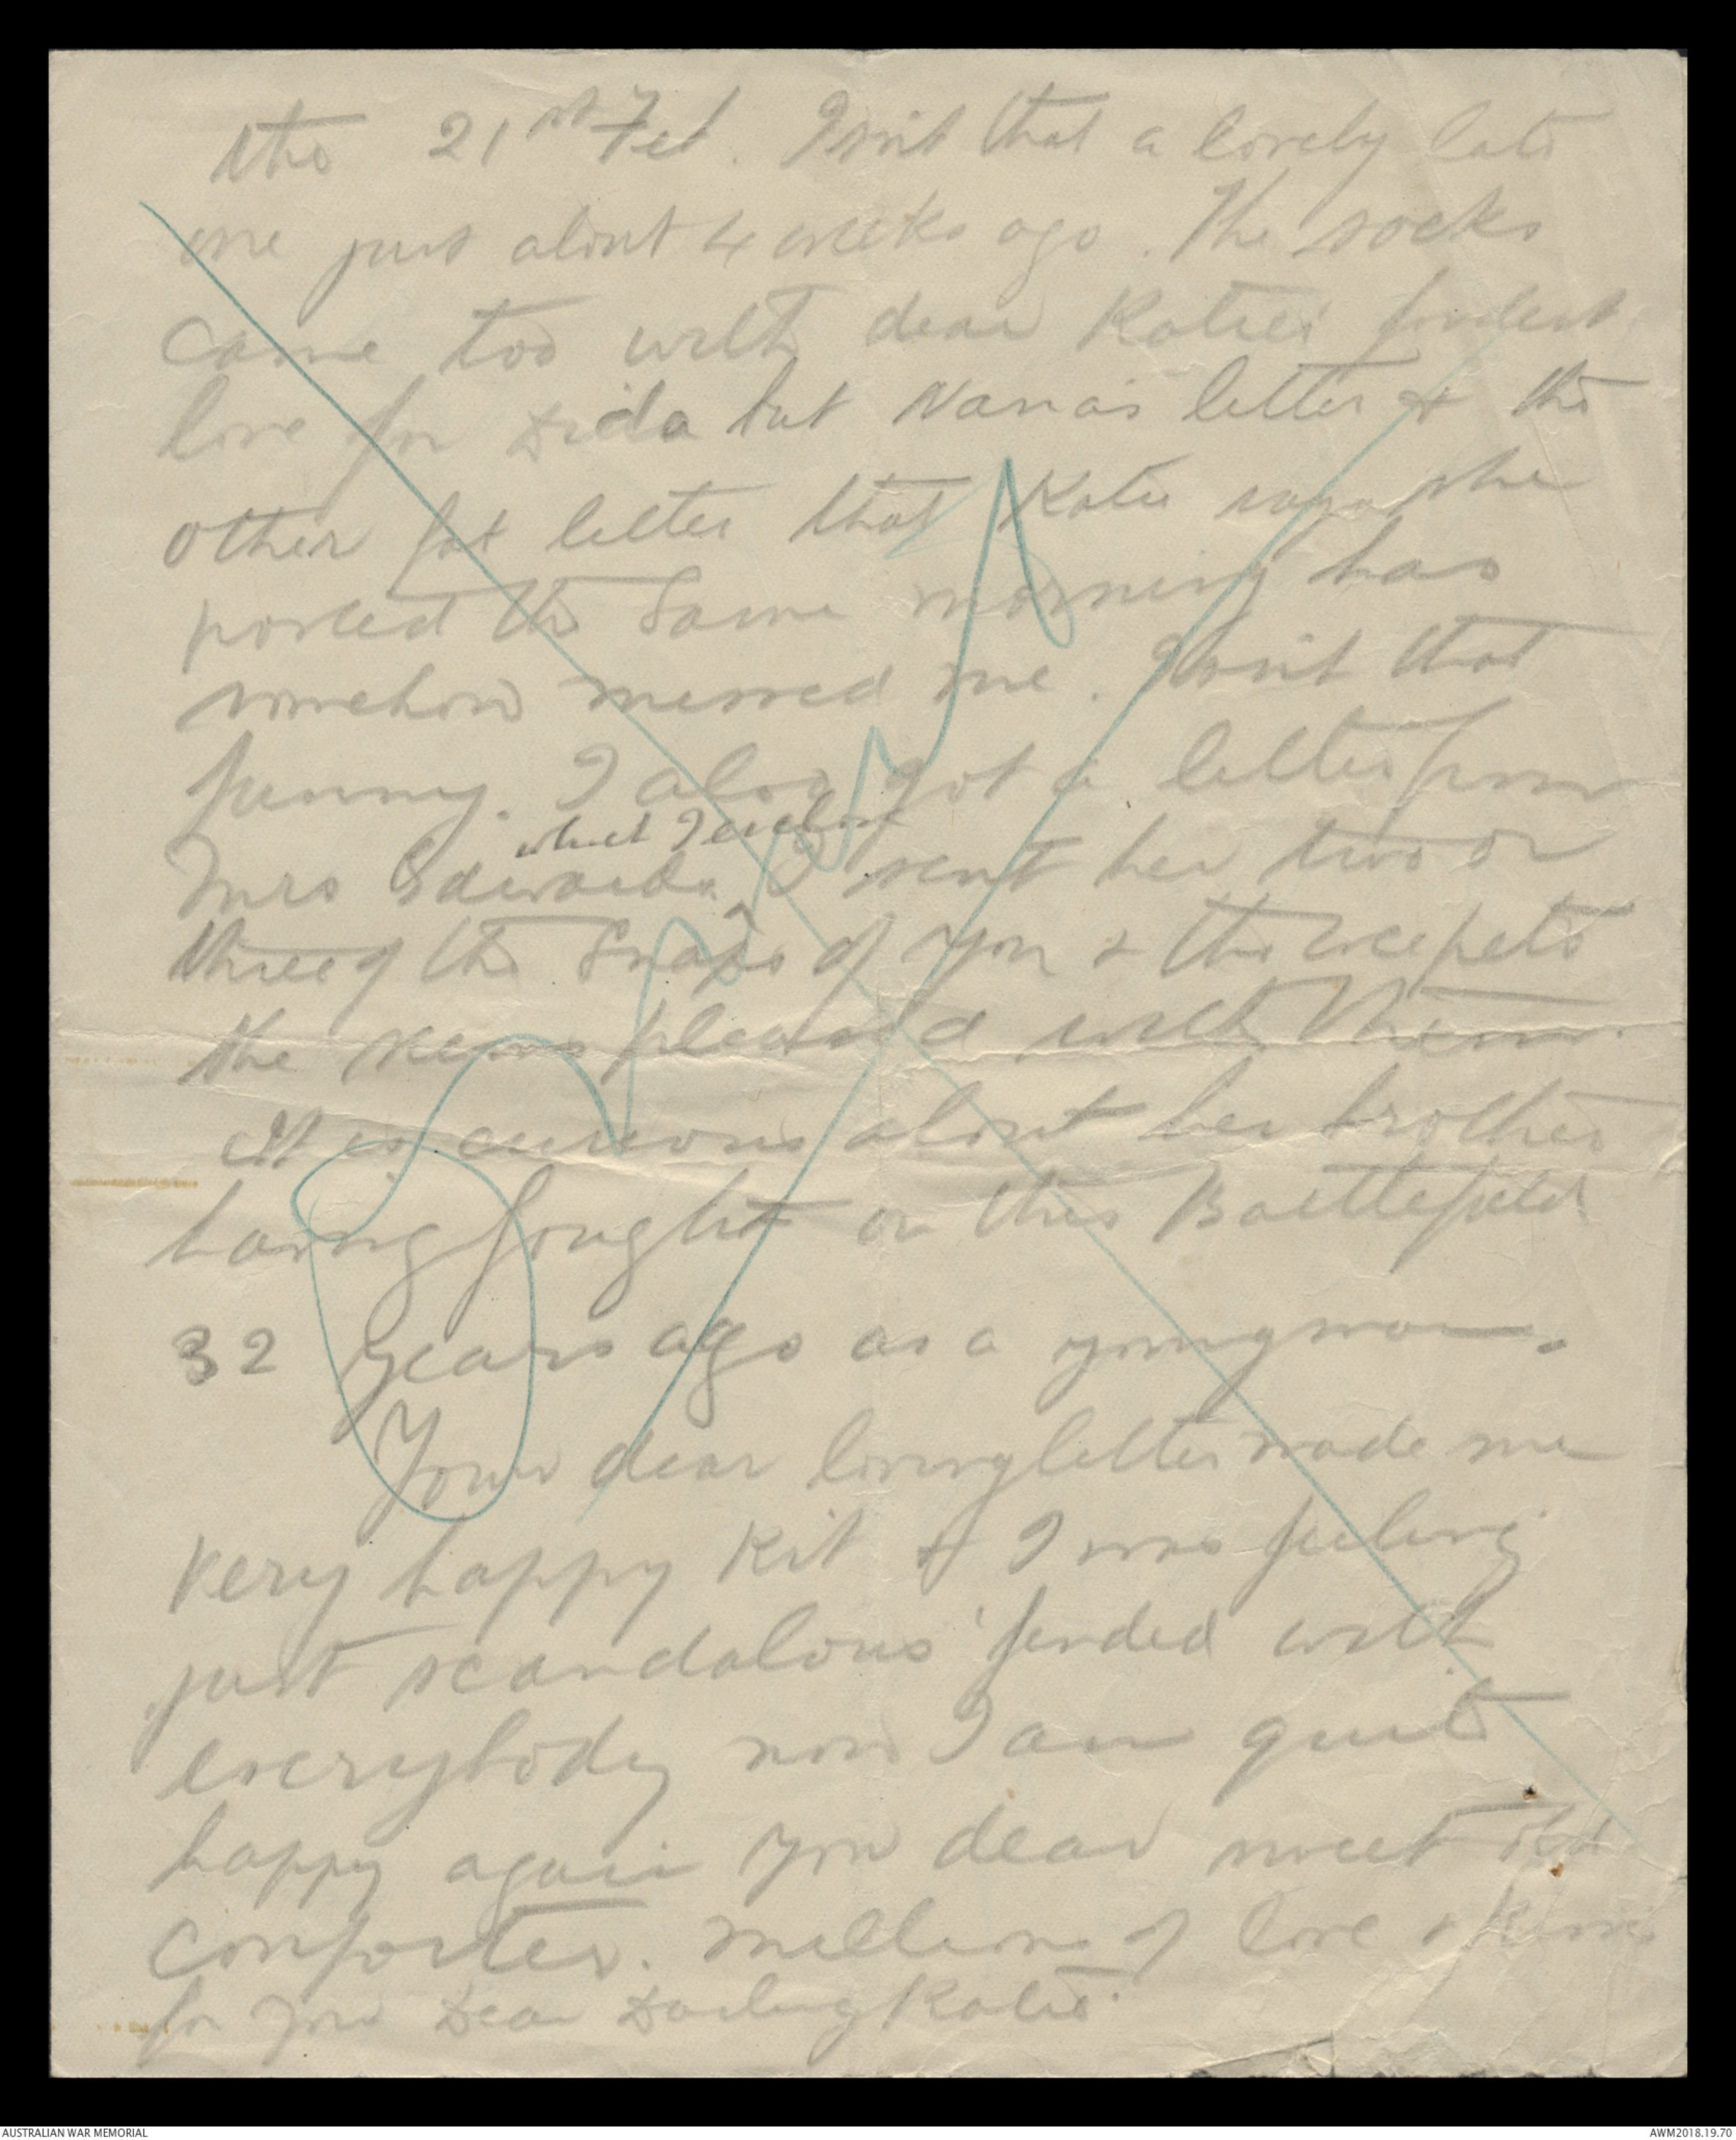 the 21st Feb. Isn't that a lovely late
one just about 4 weeks ago. The socks
came too with dear Katie's fondest
love for Dida but Nana's letter & the
other fat letter that Katie says she
posted the same morning has
somehow missed me. Isn't that
funny. I also got a letter from
which I enclose
Mrs Edwards. I sent her two or
three of the snaps of you & the wee pets
She seems pleased with them.
It is curious about her brother
having fought on this Battlefield
32 years ago as a young man.
Your dear loving letter made me
very happy Kit & I was feeling
just scandalous 'fended with
everybody now I am quite
happy again you dear sweet old
comforter. Millions of love & kisses
for you Dear Darling Katie.
AUSTRALIAN WAR MEMORIAL
AWM2018.19.70